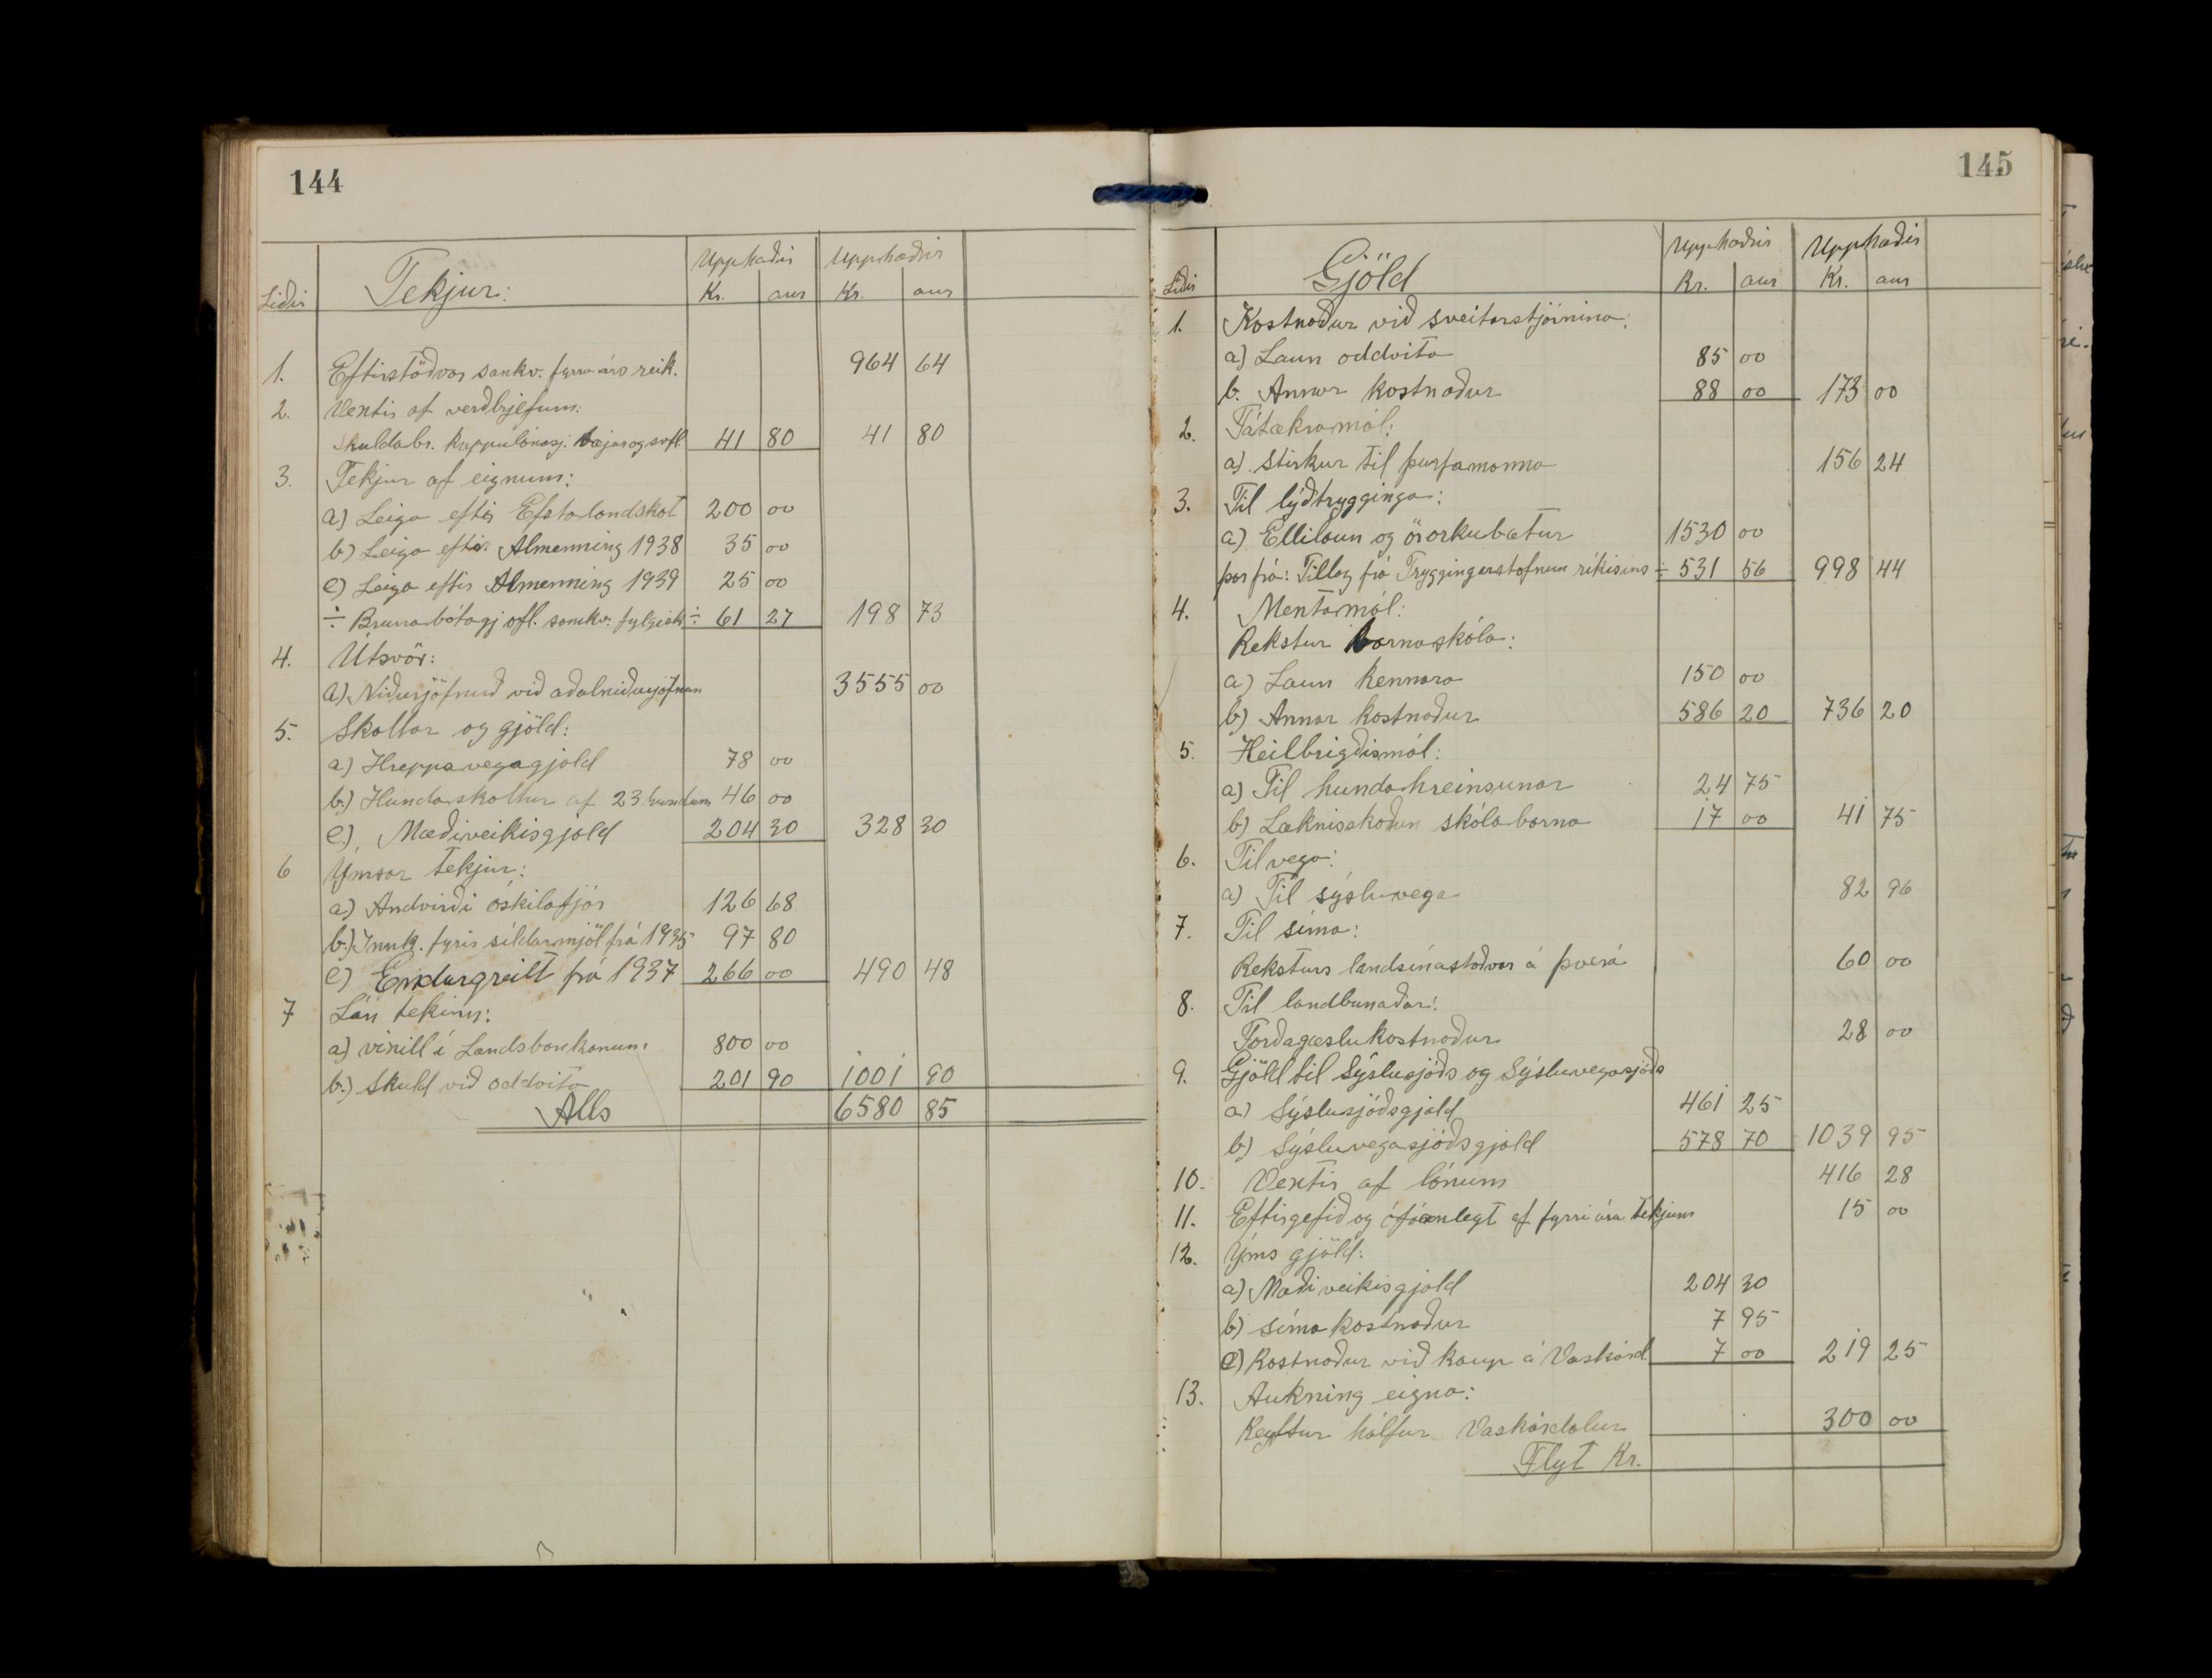 144
Liðir Tekjur: Upphæðir Upphæðir
Kr. aur Kr. aur
1. Eftirstöðvar samkv. fyrra árs reik. 964 64
2. Vextir af verðbrjefum:
Skuldabr. Kreppulánasj. bæjar og svfl. 41 80 41 80
3. Tekjur af eignum:
a) Leiga eftir Efstalandskot 200 00
b) Leiga eftir Almenning 1938 35 00
c) Leiga eftir Almenning 1939 25 00
÷ Brunabótagj ofl. samkv. fylgisk ÷ 61 27 198 73
4. Útsvör:
a) Niðurjöfnuð við aðalniðurjöfnun 3555 00
5. Skattar og gjöld:
a) Hreppavegagjald 78 00
b.) Hundaskattur af 23 hundum 46 00
c). Mæðiveikisgjald 204 30 328 30
6 Ýmsar tekjur:
a.) Andvirði óskilafjár 126 68
b.) Innk. fyrir síldarmjöl frá 1935 97 80
c) Endurgreitt frá 1937 266 00 490 48
7 Lán tekin:
a) víxill í Landsbankanum 800 00
b.) Skuld við oddvita 201 90 1001 90
Alls 6580 85
145
Liðir Gjöld Upphæðir Upphæðir
Kr. aur Kr. aur
1. Kostnaður við sveitarstjórnina:
a) Laun oddvita 85 00
b. Annar kostnaður 88 00 173 00
2. Fátækramál:
a). Stirkur til þurfamanna 156 24
3. Til lýðtrygginga:
a) Ellilaun og örorkubætur 1530 00
þar frá: Tillag frá Tryggingarstofnun ríkisins ÷ 531 56 998 44
4. Mentamál:
Rekstur barnaskóla:
a) Laun kennara 150 00
b) Annar kostnaður 586 20 736 20
5. Heilbrigðismál:
a) Til hundahreinsunar 24 75
b) Læknisskoðun skólabarna 17 00 41 75
6. Til vega:
a) Til sýsluvega 82 96
7. Til síma:
Reksturs landsímastöðvar á Þverá 60 00
8. Til landbunaðar:
Forðagæslukostnaður 28 00
9. Gjöld til Sýslusjóðs og Sýsluvegasjóðs
a) Sýslusjóðsgjald 461 25
b) Sýsluvegasjóðsgjald 578 70 1039 95
10. Vextir af lánum 416 28
11. Eftirgefið og ófáanlegt af fyrri ára tekjum 15 00
12. Ýms gjöld:
a) Mæðiveikisgjald 204 30
b) símakostnaður 7 95
c) Kostnaður við kaup á Vaskárd. 7 00 219 25
13. Aukning eigna:
Keyftur hálfur Vaskárdalur 300 00
Flyt Kr.